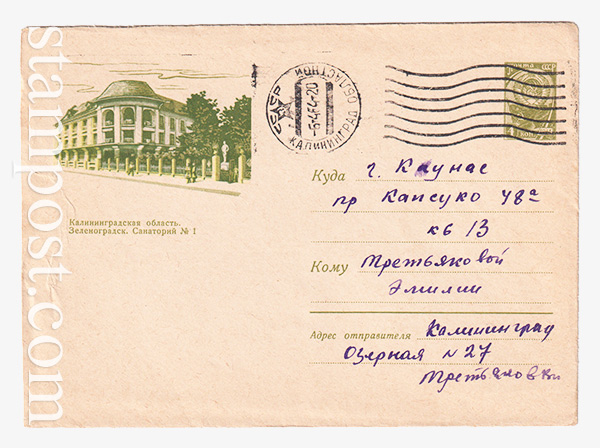 stampost.com
Калининградская область.
Зеленоградск. Санаторий № 1
СССР
КАЛИНИНГРАД ОБЛАСТНОЙ
-6-4-64-20
ПОЧТА СССР
Куда г. Каунас
пр Капсуко 48а
кв 13
Кому Третьяковой
Эмилии
Адрес отправителя Калининград
Озерная N 27